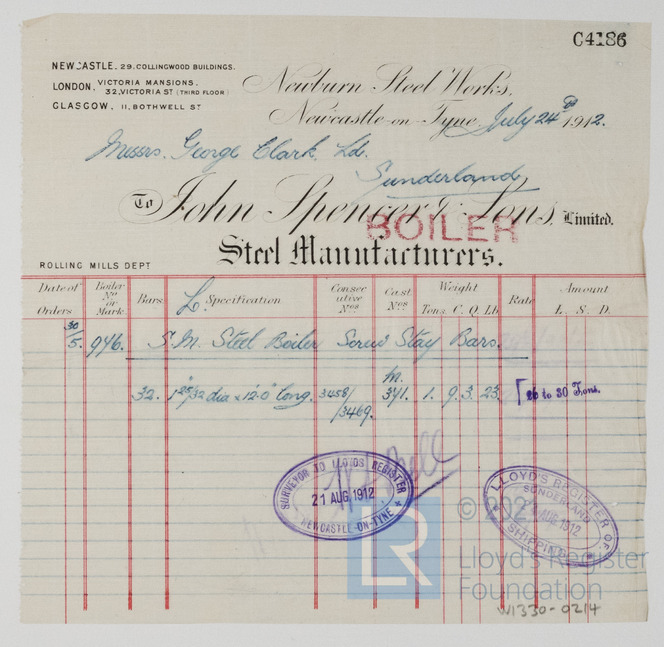 C4186
NEWCASTLE. 29. COLLINGWOOD BUILDINGS.
LONDON. VICTORIA MANSIONS. 32, VICTORIA ST (THIRD FLOOR)
GLASGOW, 11, BOTHWELL ST
Newburn Steel Works,
Newcastle-on-Tyne, July 24th 1912.
Messrs. George Clark, Ld.
Sunderland
To John Spencer & Sons, Limited.
BOILER
Steel Manufacturers.
ROLLING MILLS DEPT
Date of Orders Boiler No or Mark. Bars. L. Specification Consecutive Nos Cast Nos Weight Tons. C. Q. Lb. Rate Amount L. S. D.
30/5. 946. S. M. Steel Boiler Screw Stay Bars.
32. 1 25/32 dia x 12'.0" long. 3458/3469. M. 371. 1. 9. 3. 23. 26 to 30 Tons.
SURVEYOR TO LLOYDS REGISTER
21 AUG 1912
NEWCASTLE-ON-TYNE
LLOYD'S REGISTER OF
SUNDERLAND
AUG 1912
SHIPPING
© 202
LR
Lloyd's Register
Foundation
W1330-0214